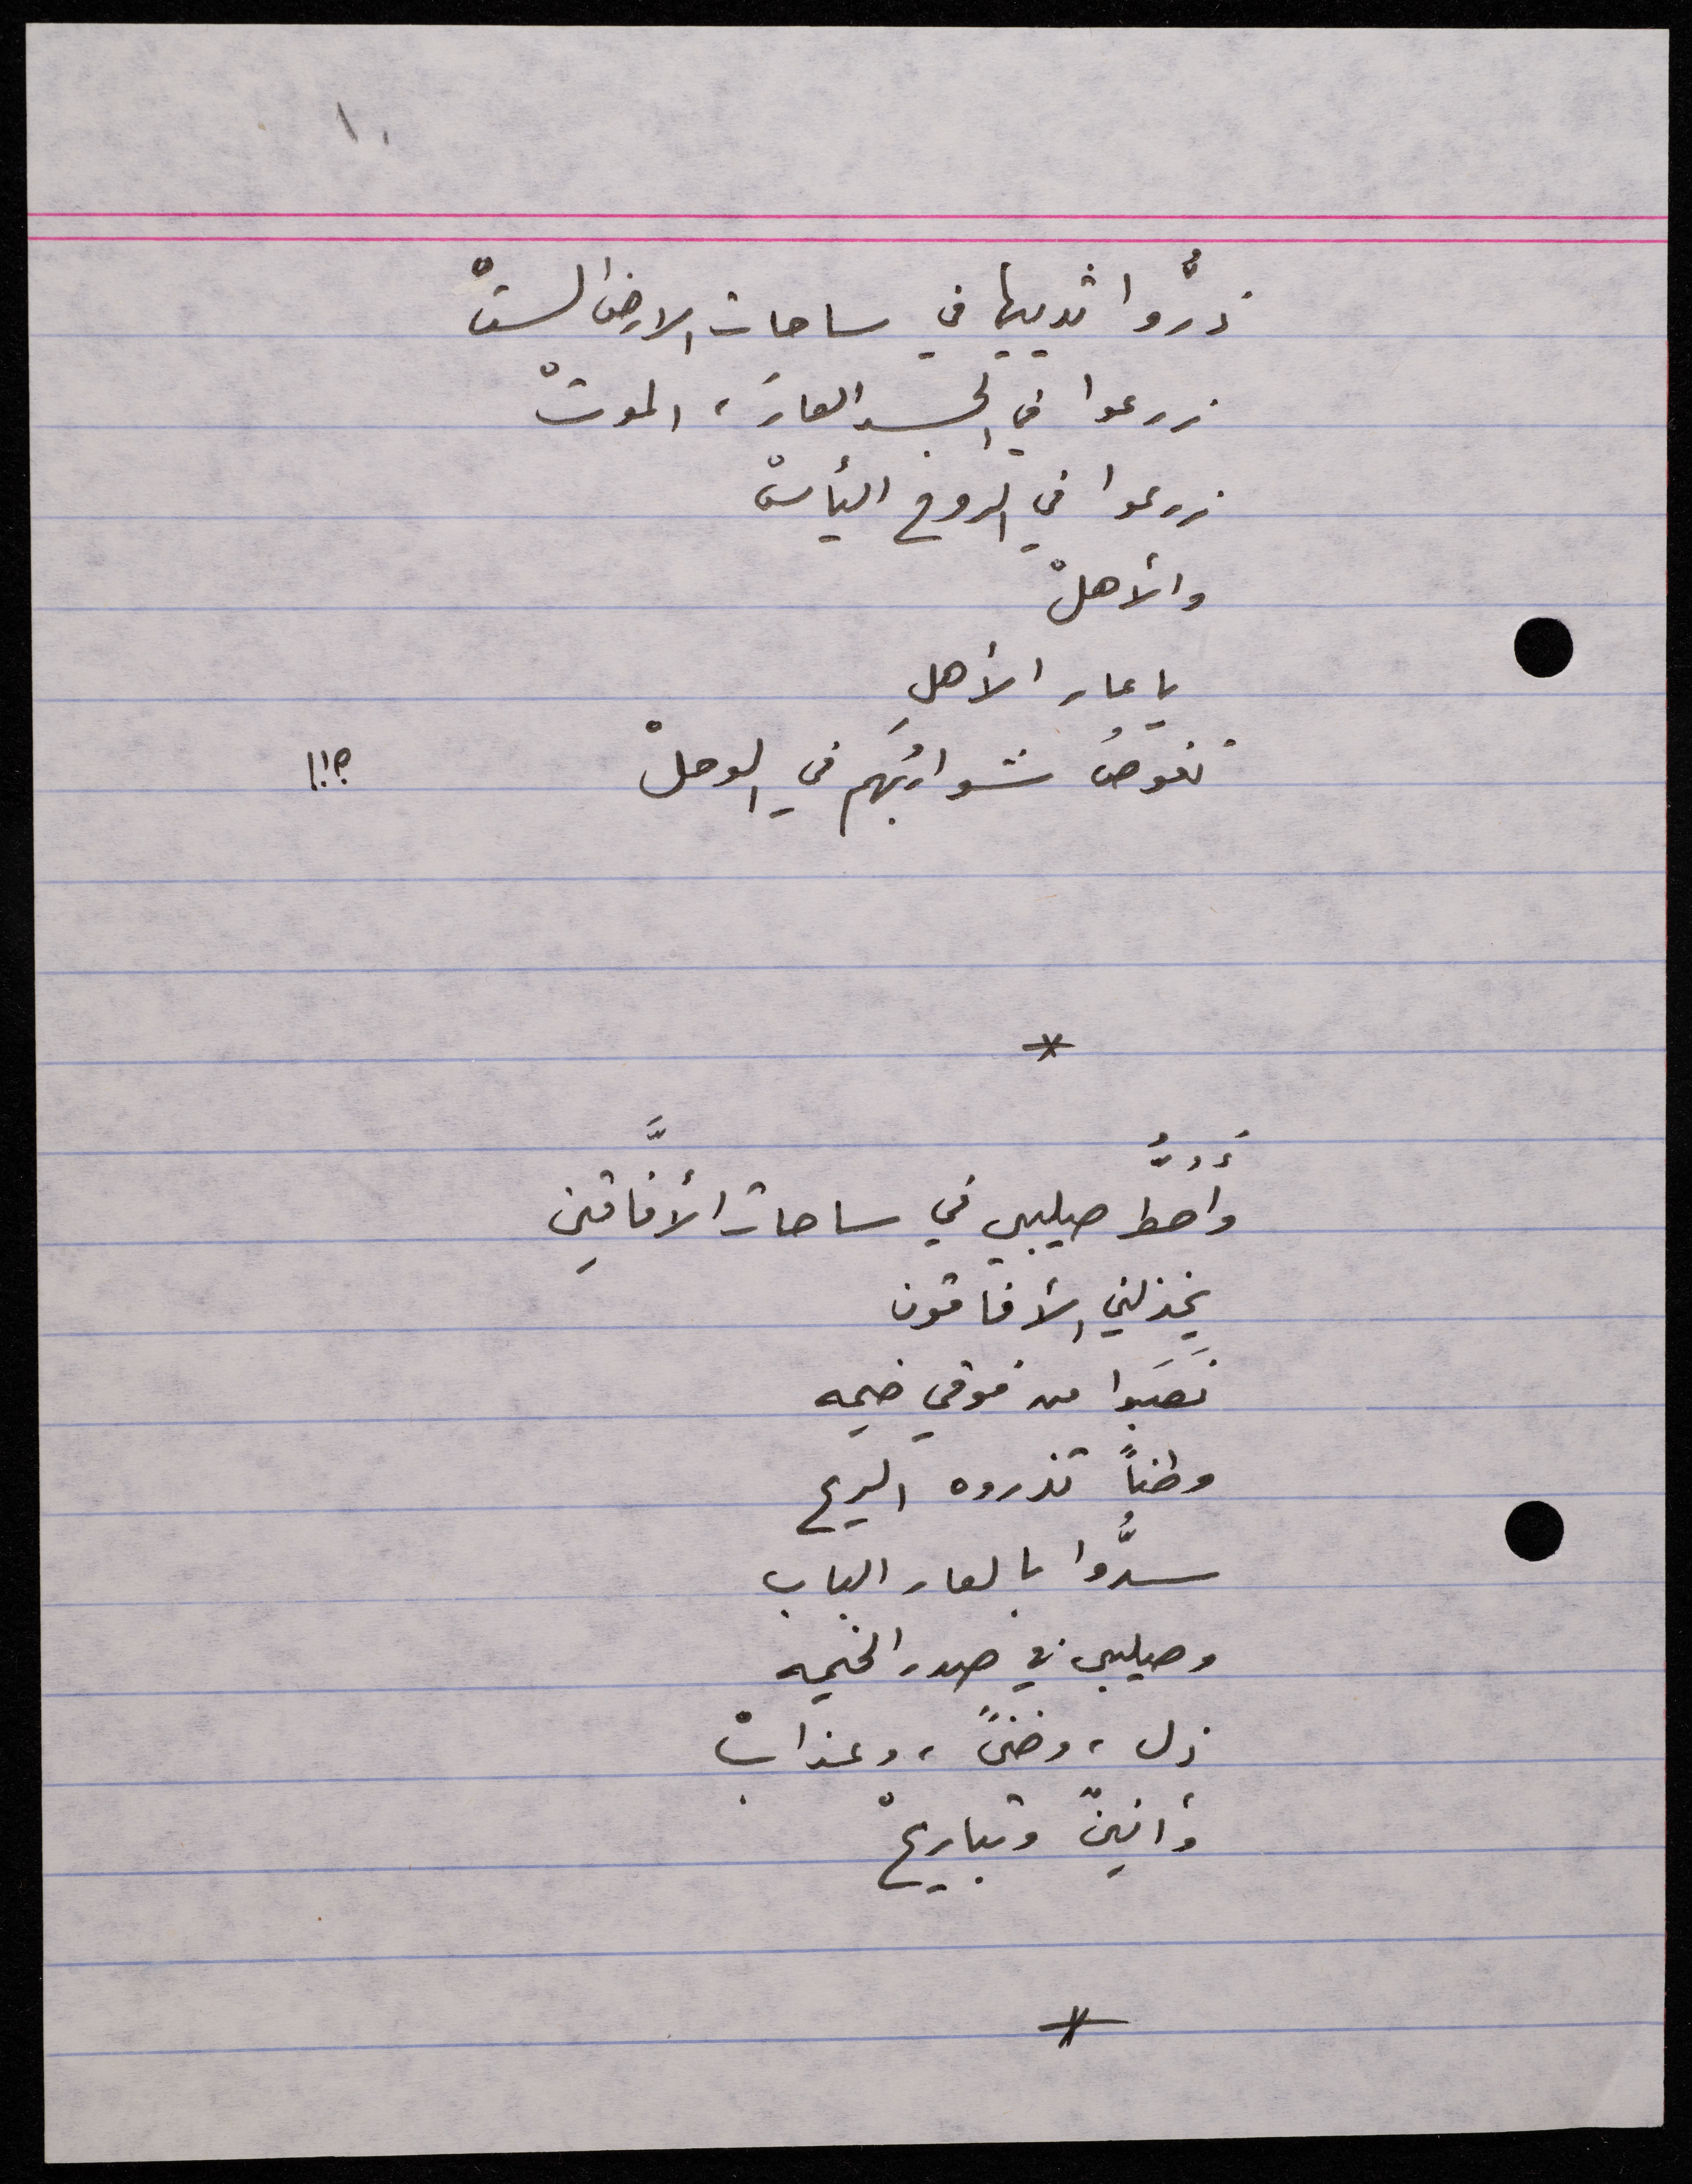 ١٠
ذرُّوا ثدييها في ساحات الارض الستّْ
زرعوا في الجسد العارَ ، الموتْ
زرعوا في الروح اليأسْ
والأهلْ
يا عار الأهلِ
تغوصُ شواربُهم في الوحلْ ؟!!
*
وأحطُّ صليبي في ساحات الأفَّاقينِ
يخذلني الأفاقون
نَصَبَوا من فوقي خيمه
وطناً تذروه الريح
سدُّوا بالعار الباب
وصليبي في صدر الخيمه
ذل ، وضنىً ، وعذابْ
وأنينٌ وتباريحْ
*